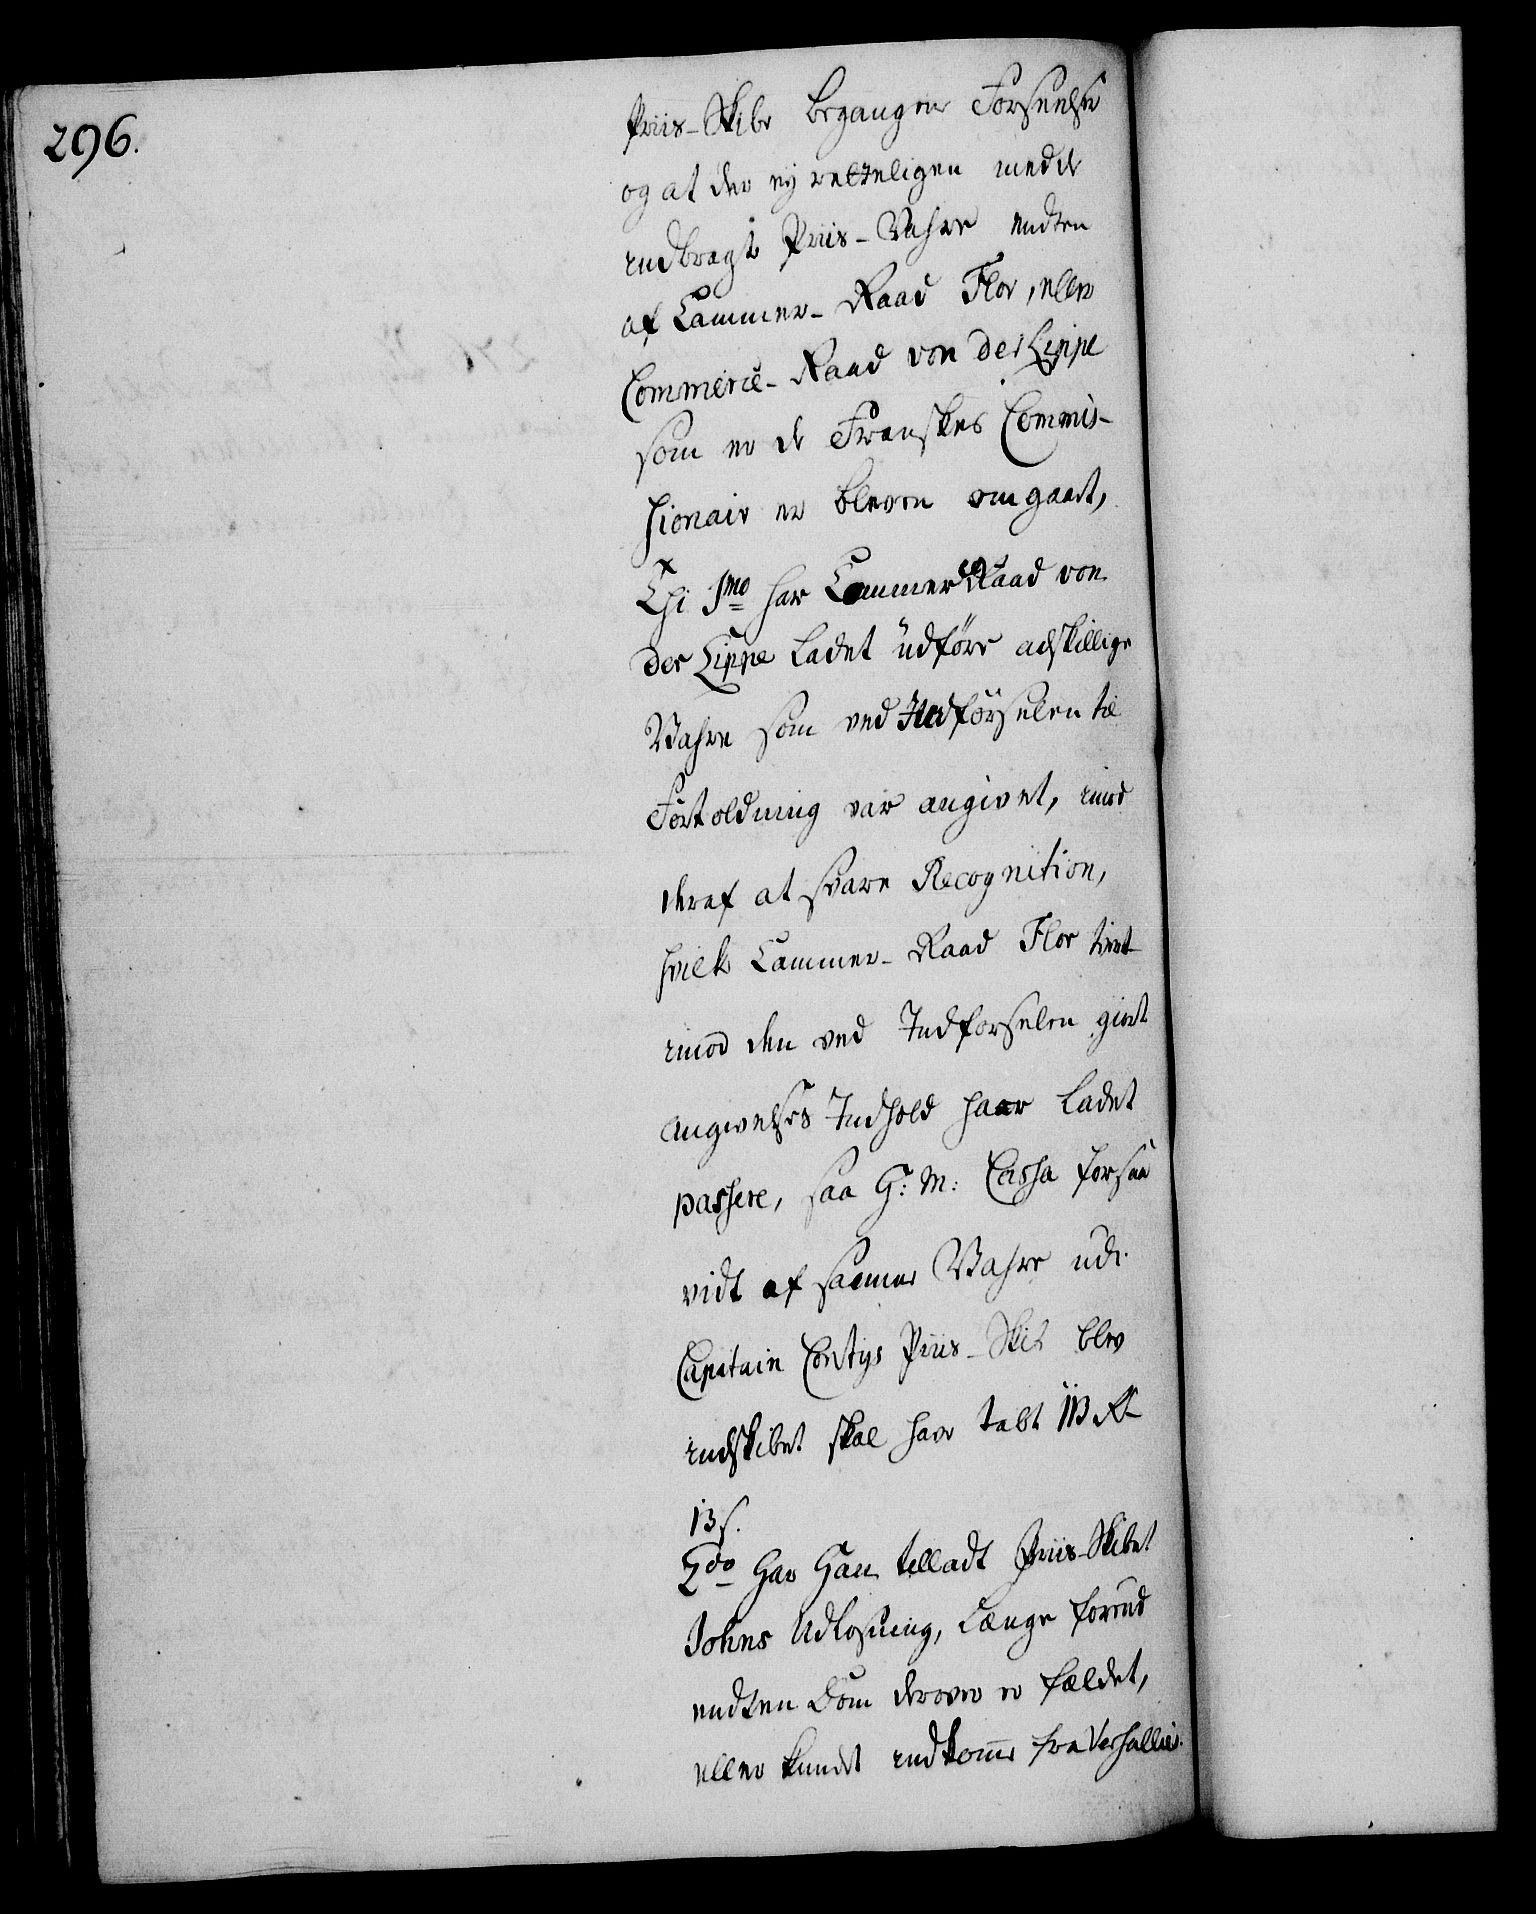 296.
Priis-Skibe begangne Forseelse
og at der ey retteligen med de
indbragte Priis-Vahre endten
af Cammer-Raad Flor, eller
Commerce-Raad von der Lippe
som er de Franskes Commis-
sionair er bleven omgaaet,
Thi 1mo har Cammer Raad von
der Lippe ladet udføre adskillige
Vahre som ved Indførselen til
Fortoldning var angivet, imod
deraf at svare Recognition,
hvilke Cammer-Raad Flor tvert
imod den ved Indførselen giort
angivelses Indhold haar ladet
passere, saa H: M: Cassa forsaa
vidt af samme Vahre udi
Capitain Priis-Skib blev
indskibet skal have tabt 113 Rd
13 s.
2do har Han tilladt Priis-Skibet
Johns Udlosning, længe forend
endten Dom derover er fældet,
eller kundet indkomme fra Versallies.